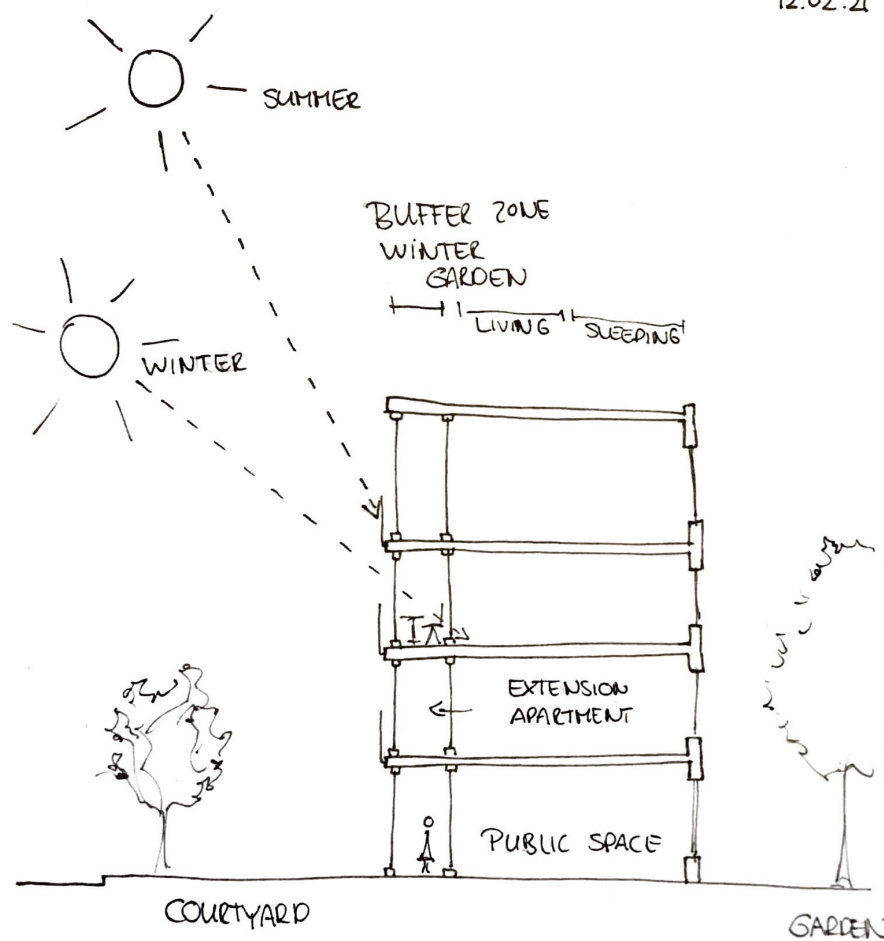 12.02.21
SUMMER
BUFFER ZONE
WINTER
GARDEN
LIVING
SLEEPING
WINTER
EXTENSION
APARTMENT
PUBLIC SPACE
COURTYARD
GARDEN